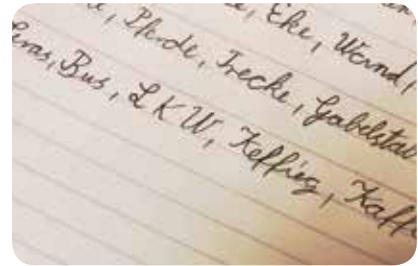 Eke, Wand,
Pferde, Trecke, Gabelstau
Bus, LKW, Keffieg, Kaff